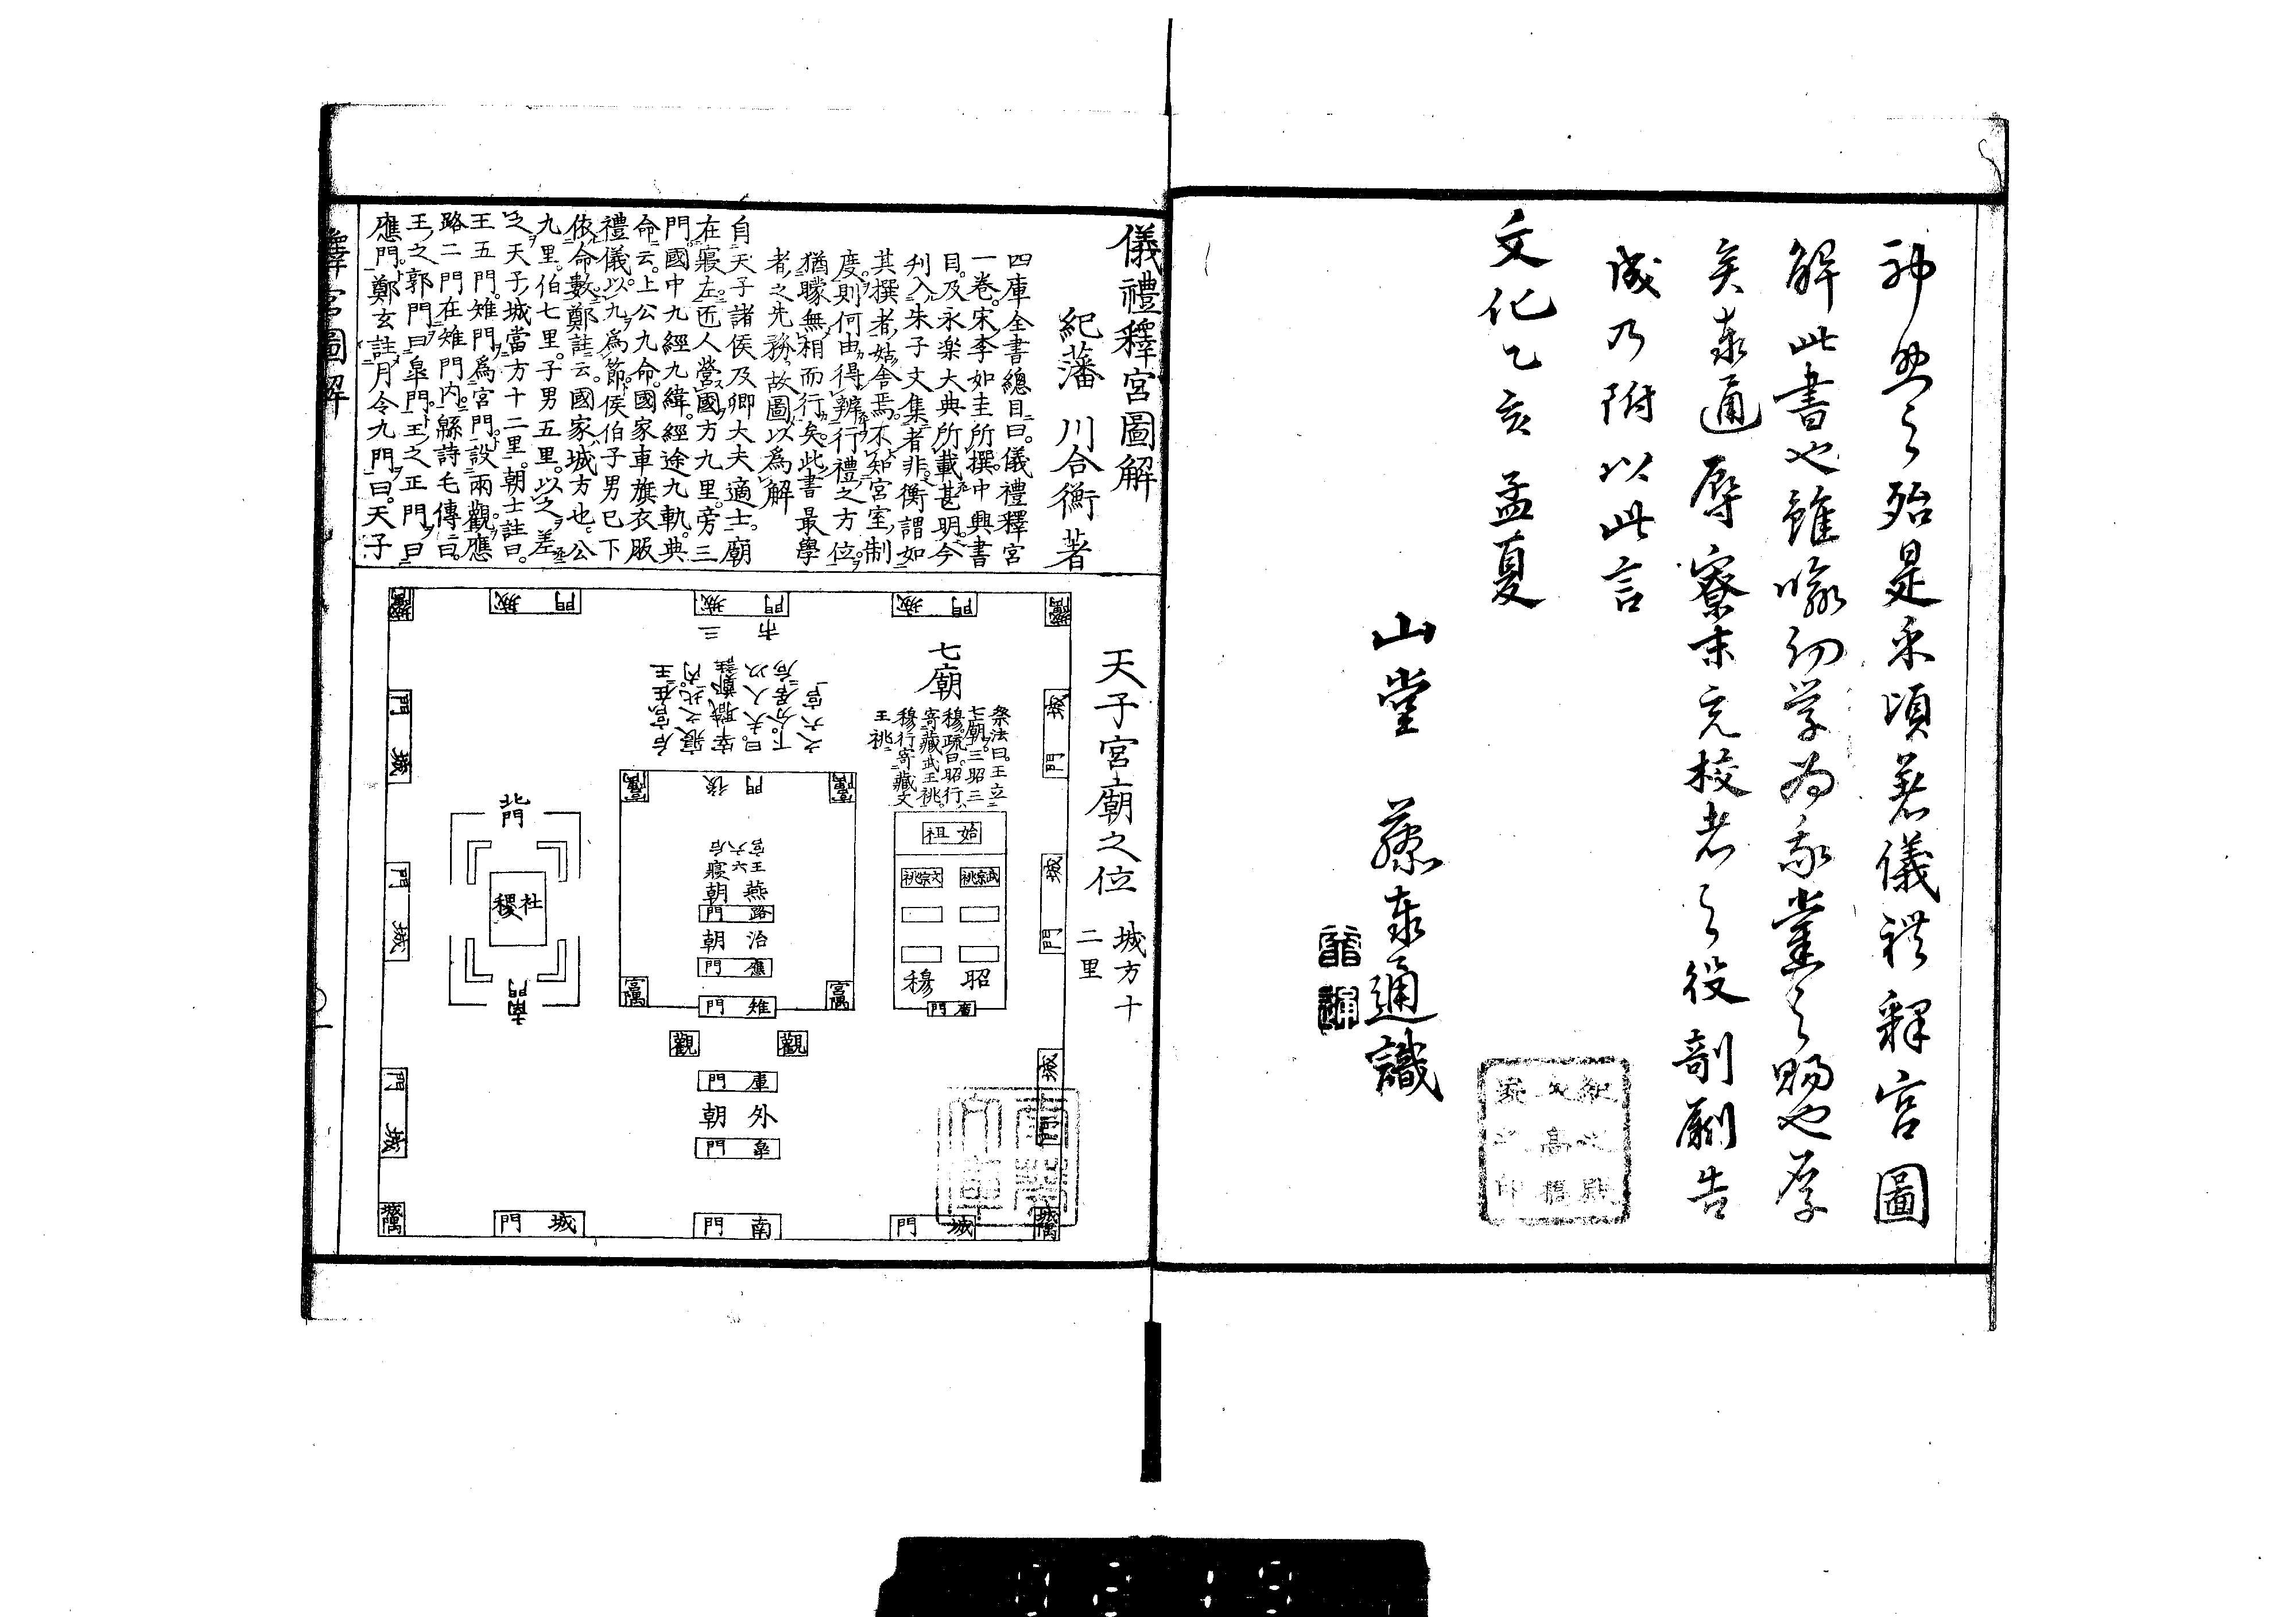 解此書也雖喩初学為
矣泰通辱寮末充校者之役剞劂告
成乃附以此言
文化乙亥孟夏
山堂 藤泰通識
儀禮釋宮圖解
紀藩 川合衡著
四庫全書總目曰儀禮釋宮
一卷宋李如圭所撰中興書
目及永楽大典所載甚明今
刋入朱子文集者非衡謂如
其撰者姑舍焉不知宮室制
度則何由得辨行禮之方位
猶矇無相而行矣此書最學
者之先務故圖以為解
自天子諸侯及卿大夫適士廟
在寢左匠人營國方九里旁三
門國中九經九緯經途九軌典
命云上公九命國家車旗衣服
禮儀以九為節侯伯子男已下
依命數鄭註云國家城方也公
九里伯七里子男五里以之差
之天子城當方十二里朝士註曰
王五門雉門為宮門設兩觀應
路二門在雉門內緜詩毛傳曰
王之郭門曰皐門王之正門曰
應門鄭玄註月令九門曰天子
釋宮圖解
天子宮廟之位 城方十二里
城隅
城門
城門
城門
城隅
三市
七廟
祭法曰王立
七廟三昭三
穆疏曰昭行
寄藏武王祧
穆行寄藏文
王祧
后宮在王
寢之北內
宰職鄭註
曰夫人以
下分居后
之六宮
城門
城門
城門
城門
城門
城門
宮隅
後門
宮隅
后六宮
王六寢
燕朝
路門
治朝
應門
宮隅
雉門
宮隅
觀
觀
庫門
外朝
皐門
始祖
武宗祧
文宗祧
昭
穆
廟門
北門
社稷
南門
城隅
城門
南門
城門
城隅